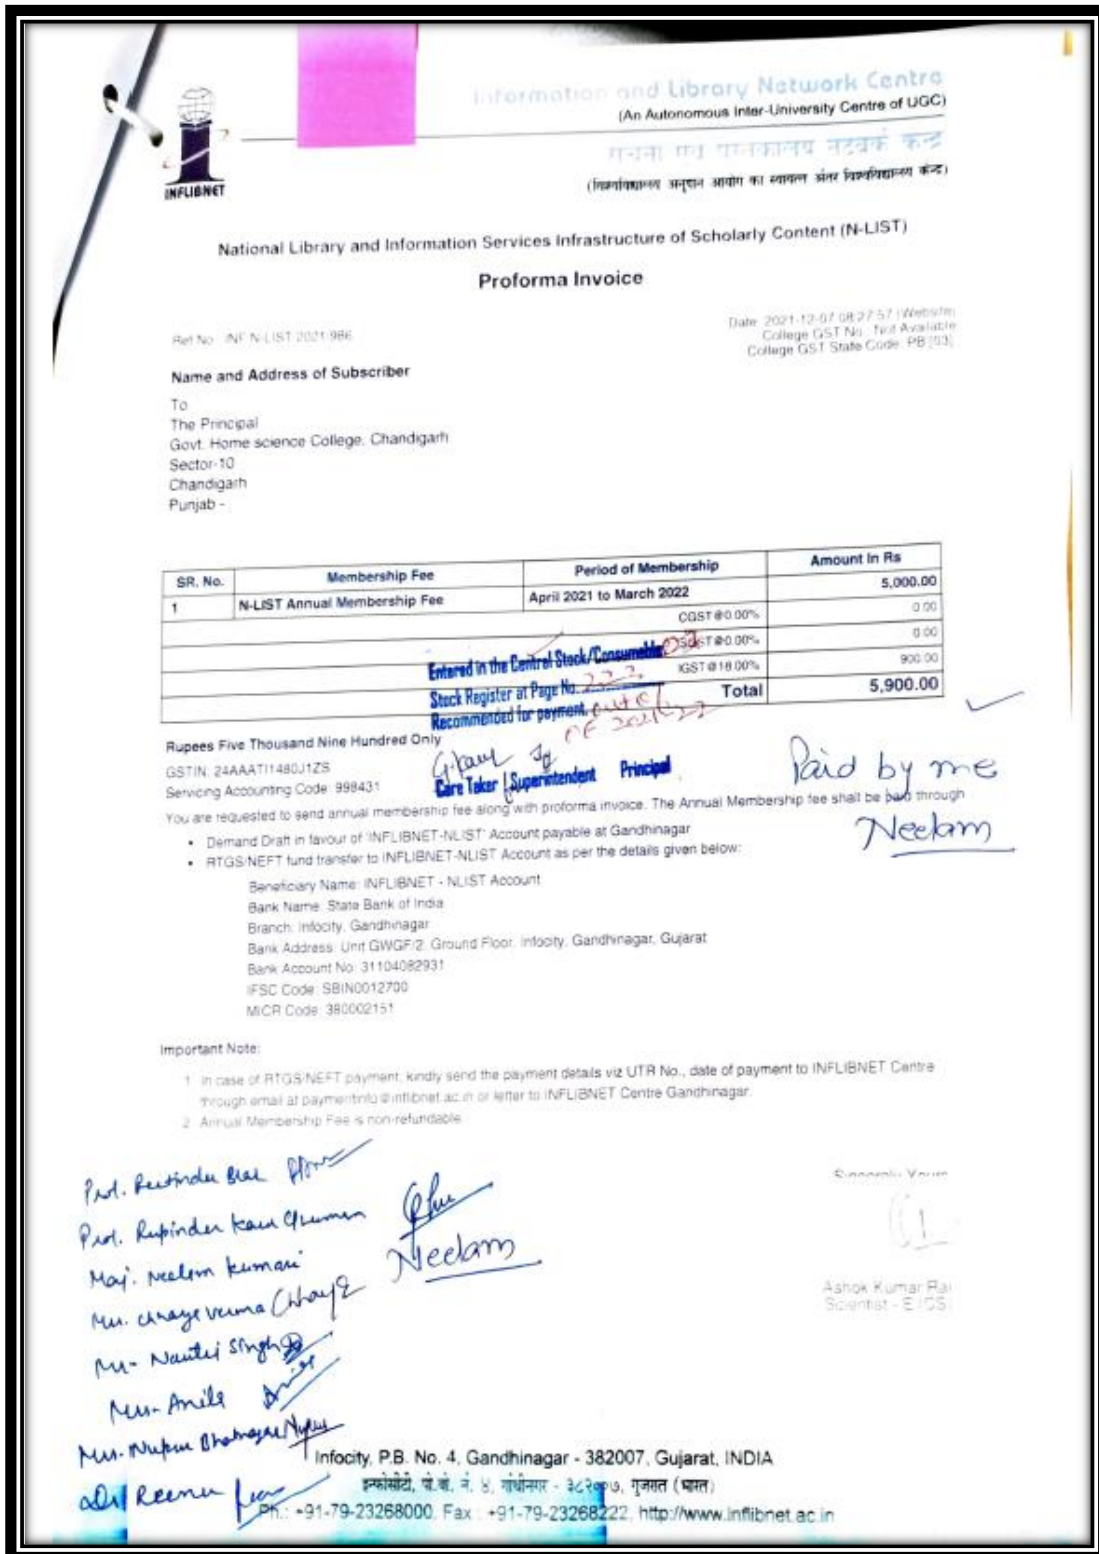 Information and Library Network Centre
(An Autonomous Inter-University Centre of UGC)
(विश्वविद्यालय अनुदान आयोग का स्वायत्त अंतर विश्वविद्यालय केंन्द्र)
INFLIBNET
National Library and Information Services Infrastructure of Scholarly Content (N-LIST)
Proforma Invoice
Ref No : INF N-LIST 2021 986
Date: 2021-12-07 08:27:57 (Website)
College GST No : Not Available
College GST State Code: PB [03]
Name and Address of Subscriber
To
The Principal
Govt. Home science College, Chandigarh
Sector-10
Chandigarh
Punjab -
SR. No. Membership Fee Period of Membership Amount In Rs
1 N-LIST Annual Membership Fee April 2021 to March 2022 5,000.00
CGST@0.00% 0.00
SGST@0.00% 0.00
IGST@18.00% 900.00
Total 5,900.00
Entered in the Central Stock/Consumable
Stock Register at Page No. 222
Recommended for payment.
2021-22
G.Kaur
Care Taker Superintendent Principal
Rupees Five Thousand Nine Hundred Only
GSTIN: 24AAATI1480J1ZS
Servicing Accounting Code: 998431
Paid by me
Neelam
You are requested to send annual membership fee along with proforma invoice. The Annual Membership fee shall be paid through
• Demand Draft in favour of 'INFLIBNET-NLIST' Account payable at Gandhinagar
• RTGS/NEFT fund transfer to INFLIBNET-NLIST Account as per the details given below:
Beneficiary Name: INFLIBNET - NLIST Account
Bank Name: State Bank of India
Branch: Infocity, Gandhinagar
Bank Address: Unit GWGF/2, Ground Floor, Infocity, Gandhinagar, Gujarat
Bank Account No: 31104082931
IFSC Code: SBIN0012700
MICR Code: 380002151
Important Note:
1 In case of RTGS/NEFT payment, kindly send the payment details viz UTR No., date of payment to INFLIBNET Centre
through email at paymentinfo@inflibnet.ac.in or letter to INFLIBNET Centre Gandhinagar.
2 Annual Membership Fee is non-refundable
Sincerely Yours
Ashok Kumar Rai
Scientist - E (CS)
Prof. Brar
Prof. Rupinder Kaur Ghuman
Maj. Neelam Kumari Neelam
Mrs. Chhaya Verma Chhaya
Mr. Singh
Mrs. Anila
Mrs. Nupur Bhatnagar Nupur
Reenu
Infocity, P.B. No. 4, Gandhinagar - 382007, Gujarat, INDIA
इन्फोसीटी, पो.बो. नं. ४, गांधीनगर - ३८२००७, गुजरात (भारत)
Ph.: +91-79-23268000, Fax : +91-79-23268222, http://www.inflibnet.ac.in